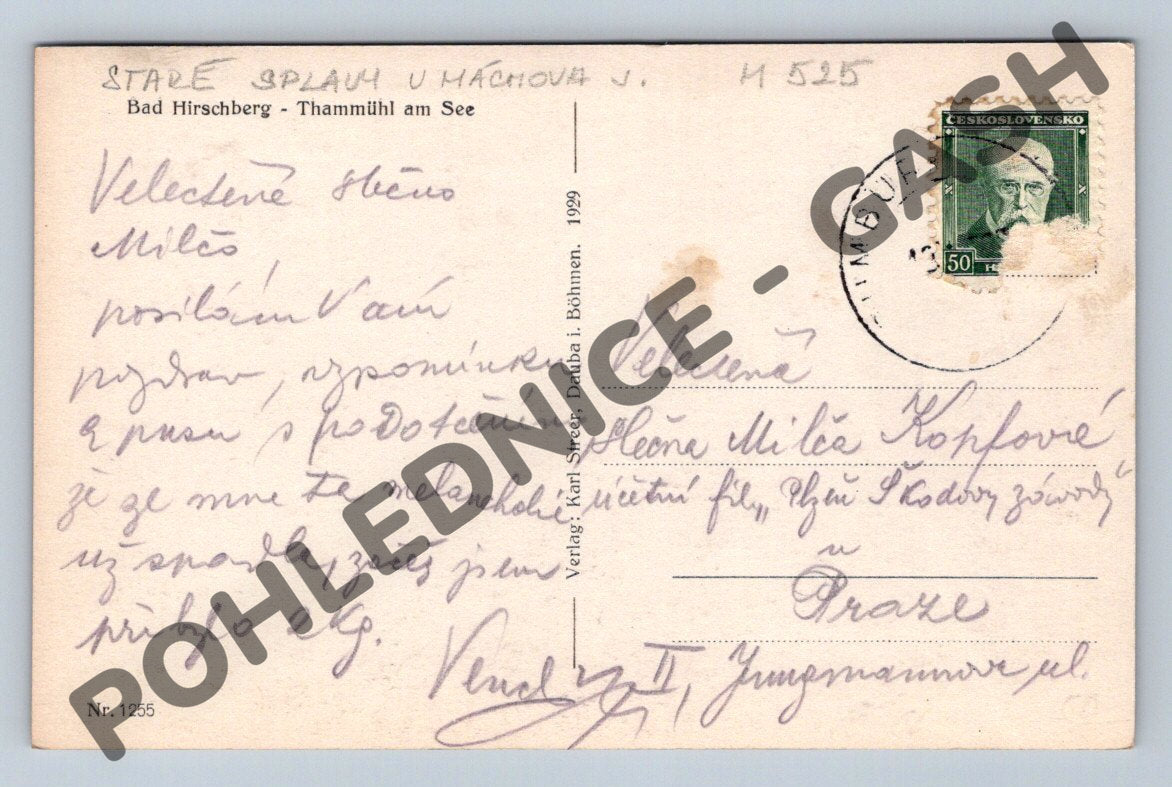 STARÉ SPLAVY U MÁCHOVA J. M 525
Bad Hirschberg - Thammühl am See
Velectěné slečno
Milčo,
posílám Vám
pozdrav, vzpomínku
a pusu s podotčením
že ze mne ta melancholie
už spadla, začež jsem
přibylo 2 Kg.
Nr. 1255
Verlag: Karl Streer, Dauba i. Böhmen. 1929
ČESKOSLOVENSKO
50
Velectěná
slečna Milča Kopfová
účetní fil. „Plzeň Škodovy závody“
v
Praze
II, Jungmannova ul.
POHLEDNICE - GASH